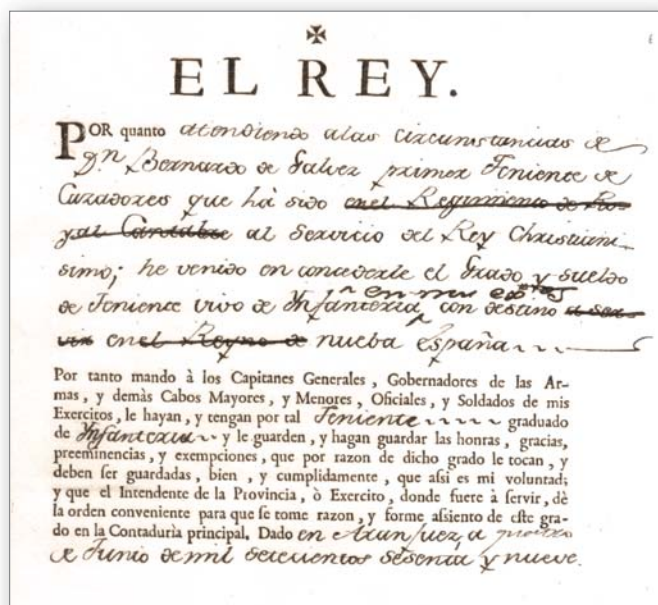 EL REY.
POR quanto atendiendo a las circunstancias de
Dn. Bernardo de Galvez primer Teniente de
Cazadores que hà sido en el Regimiento de Ro-
yal Cantabre al Servicio del Rey Christiani-
simo; he venido en concederle el Grado y sueldo
en mis
de Teniente vivo de Ynfanteria con destino a ser-
vir en el Reyno de nueba España
Por tanto mando à los Capitanes Generales, Gobernadores de las Ar-
mas, y demàs Cabos Mayores, y Menores, Oficiales, y Soldados de mis
Exercitos, le hayan, y tengan por tal Teniente graduado
de Ynfanteria y le guarden, y hagan guardar las honras, gracias,
preeminencias, y exempciones, que por razon de dicho grado le tocan, y
deben ser guardadas, bien, y cumplidamente, que assi es mi voluntad;
y que el Intendente de la Provincia, ò Exercito, donde fuere à servir, dè
la orden conveniente para que se tome razon, y forme assiento de este gra-
do en la Contadurìa principal. Dado en Aranjuez, a
de Junio de mil setecientos sesenta y nueve.